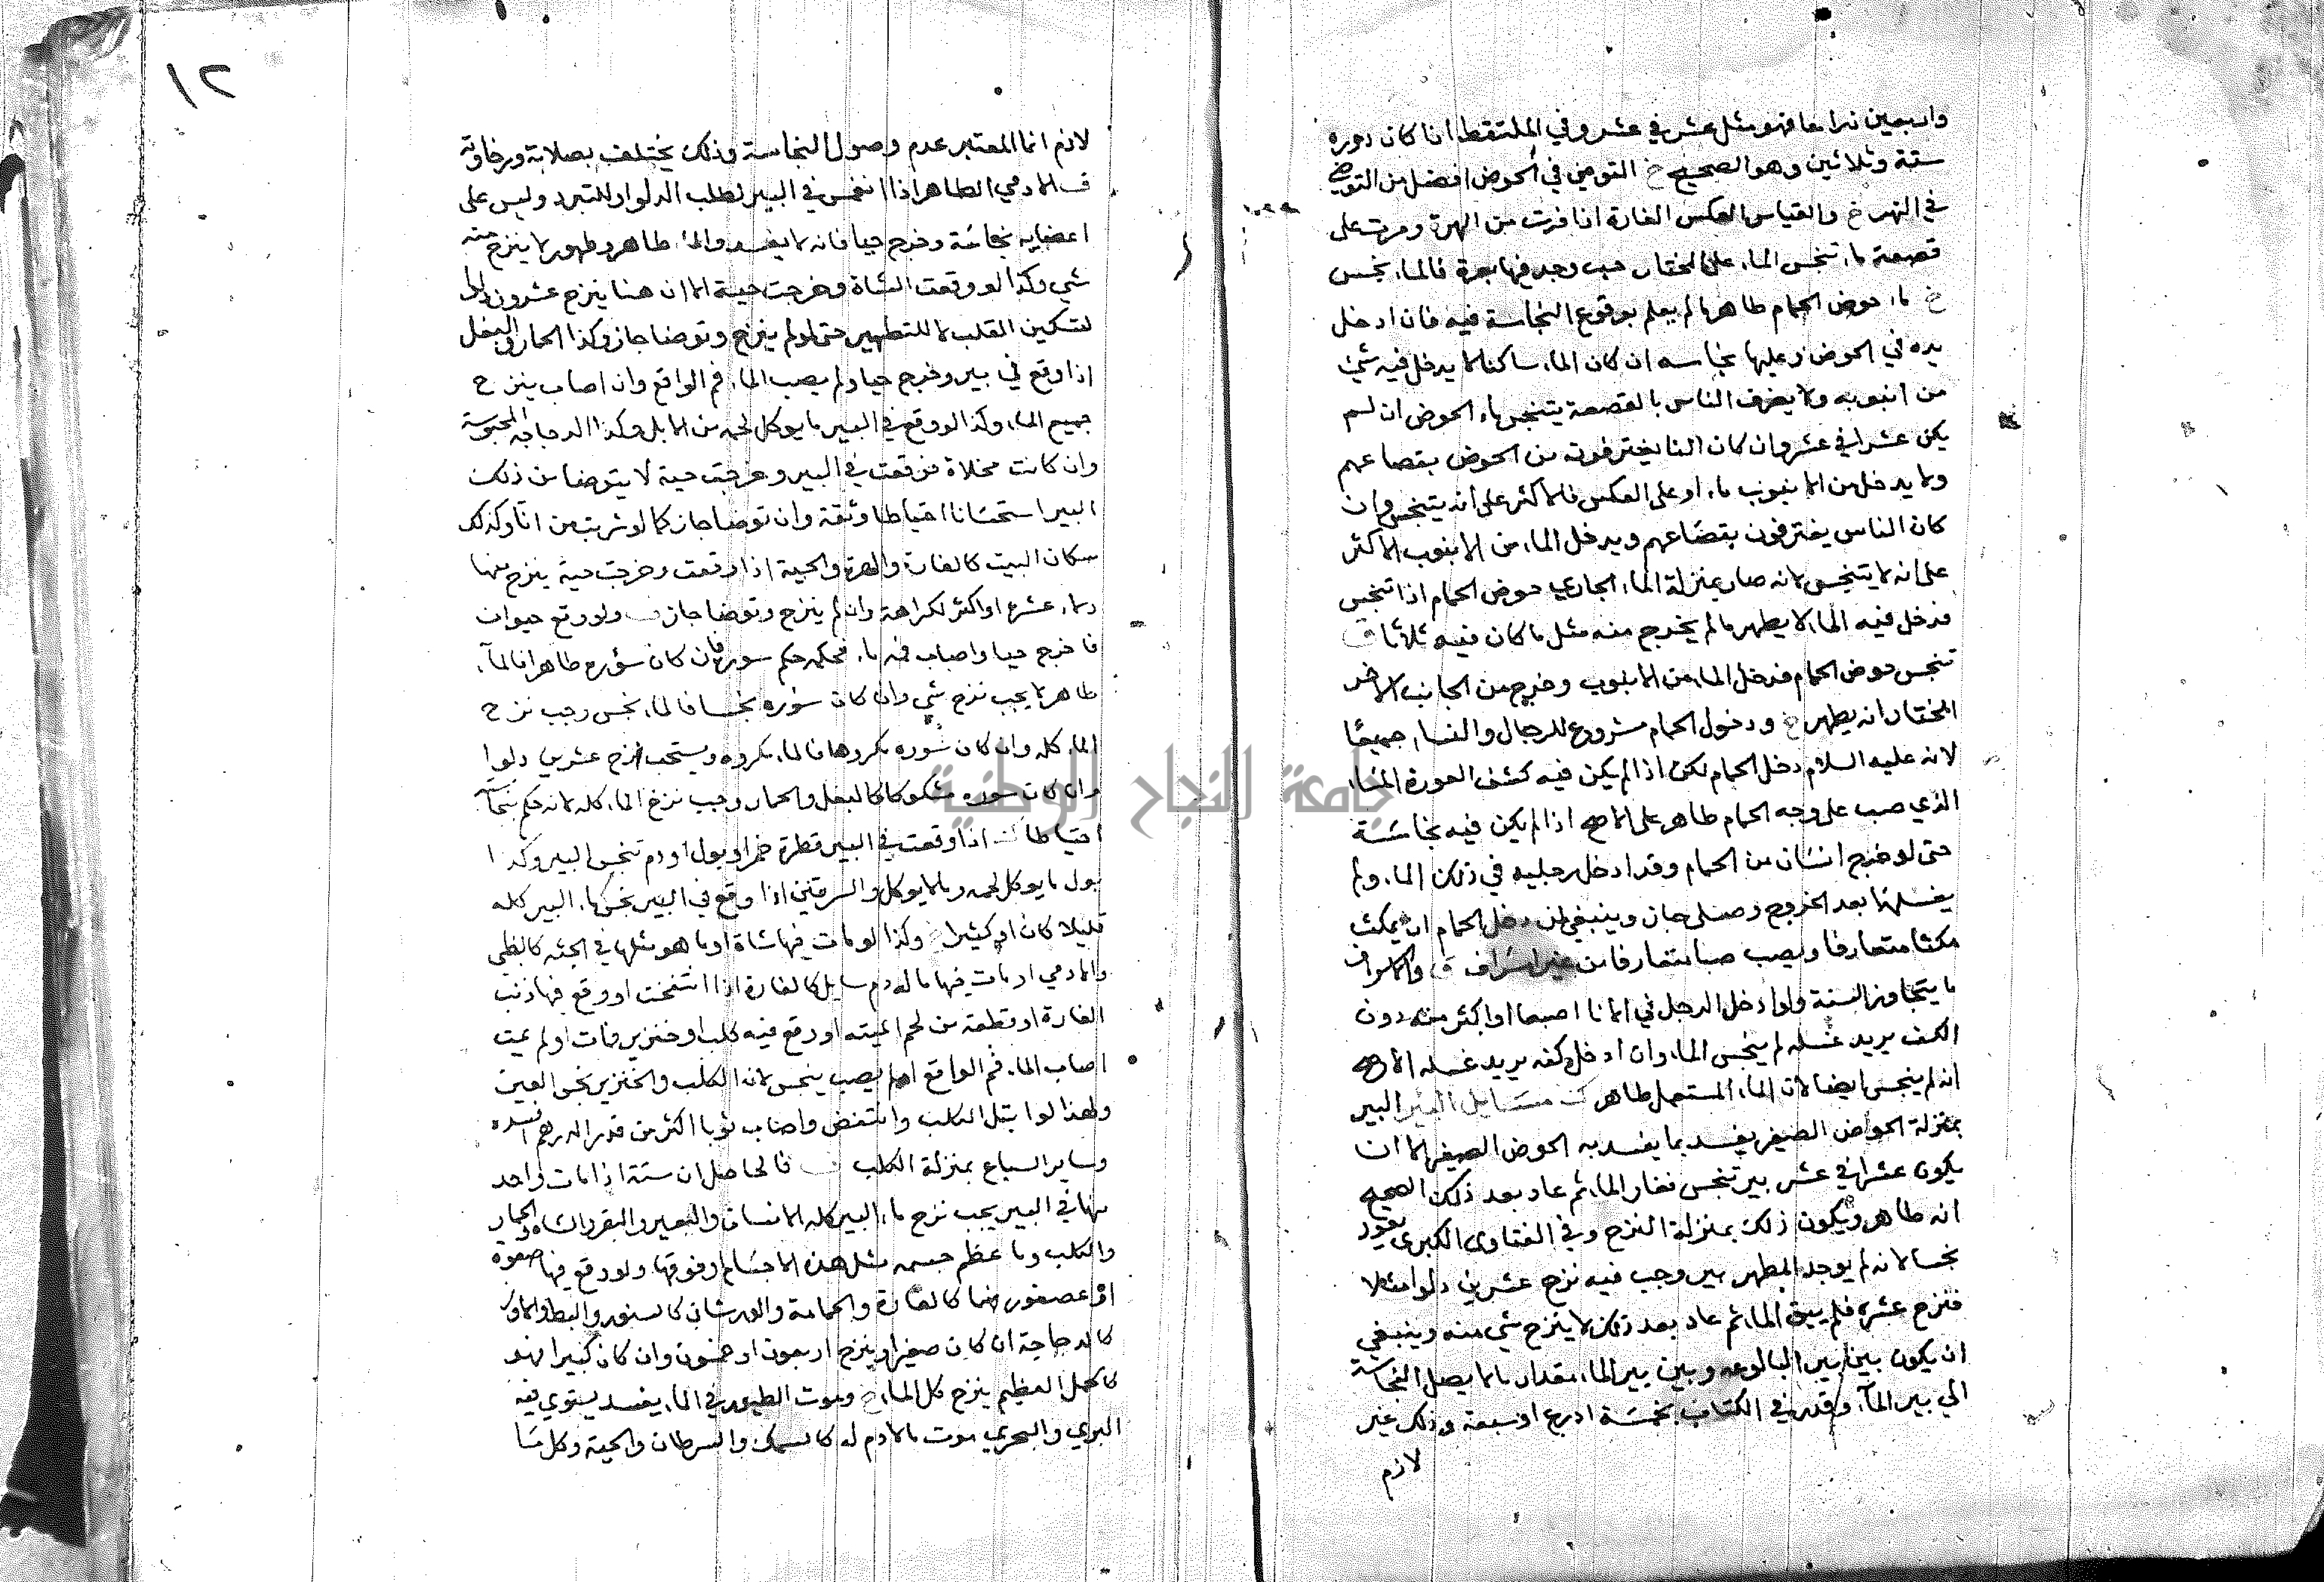 واربعين ذراعا فهو مثل عشر في عشر وفي الملتقط اذا كان دوره
ستة وثلاثين وهو الصحيح خ التوضي في الحوض افضل من التوضي
في النهر خ والقياس العكس الفارة اذا فرت من الهرة ومرت على
قصعة ماء تنجس الماء على المختار حب وجد فيها بعرة فالماء نجس
خ ماء حوض الحمام طاهر ما لم يعلم بوقوع النجاسة فيه فان ادخل
يده في الحوض وعليها نجاسه ان كان الماء ساكنا لا يدخل فيه شئ
من انبوبه ولا يغرف الناس بالقصعة يتنجس ماء الحوض ان لم
يكن عشرا في عشر وان كان الناس يغترفون من الحوض بقصاعهم
ولا يدخل من الانبوب ماء او على العكس فالاكثر على انه يتنجس وان
كان الناس يغترفون بقصاعهم ويدخل الماء من الانبوب الاكثر
على انه لا يتنجس لانه صار بمنزلة الماء الجاري حوض الحمام اذا تنجس
فدخل فيه الماء لا يطهر ما لم يخرج منه مثل ما كان فيه ثلاثا ق
تنجس حوض الحمام فدخل الماء من الانبوب وخرج من الجانب الاخر
المختار انه يطهر خ ودخول الحمام مشروع للرجال والنساء جميعا
لانه عليه السلام دخل الحمام لكن اذا لم يكن فيه كشف العورة الماء
الذي صب على وجه الحمام طاهر على الاصح اذا لم يكن فيه نجاسة
حتى لو خرج انسان من الحمام وقد ادخل رجليه في ذلك الماء ولم
يغسلهما بعد الخروج وصلى جاز وينبغي لمن دخل الحمام ان يمكث
مكثا متعارفا ويصب صبا متعارفا من غير اسراف ق والاسراف
ما يتجاوز السنة ولو ادخل الرجل في الانا اصبعا او اكثر منه دون
الكف يريد غسله لم ينجس الماء وان ادخل كفه يريد غسله الاصح
انه لم ينجس ايضا لان الماء المستعمل طاهر ك مسايل البير البير
بمنزلة الحوض الصغير يفسد بما يفسد به الحوض الصغير الا ان
يكون عشرا في عشر بير تنجس فغار الماء ثم عاد بعد ذلك الصحيح
انه طاهر ويكون ذلك بمنزلة النزح وفي الفتاوى الكبرى يعود
نجسا لانه لم يوجد المطهر بير وجب فيه نزح عشرين دلوا مثلا
فنزح عشرة فلم يبق الماء ثم عاد بعد ذلك لا ينزح شي منه وينبغي
ان يكون بين بير البالوعه وبين بير الماء مقدار ما لا يصل النجاسة
الي بير الماء وقدر في الكتاب بخمسة اذرع او سبعة وذلك غير
لازم
١٢
لازم انما المعتبر عدم وصول النجاسة وذلك يختلف بصلابة ورخاوة
ف الادمي الطاهر اذا انغمس في البير لطلب الدلو او للتبرد وليس على
اعضايه نجاسة وخرج حيا فانه لا يفسد والماء طاهر وطهور لا ينزح منه
شي وكذا لو وقعت الشاة وخرجت حية الا ان هنا ينزح عشرون دلوا
لتسكين القلب لا للتطهير حتى لو لم ينزح وتوضا جاز وكذا الحمار والبغل
اذا وقع في بير وخرج حيا ولم يصب الماء فم الواقع وان اصاب ينزح
جميع الماء وكذا لو وقع في البير ما يوكل لحمه من الابل وكذا الدجاجه المحبوسة
وان كانت مخلاة فوقعت في البير وخرجت حية لا يتوضا من ذلك
البير استحسانا احتياطا وثقة وان توضا جاز كما لو شربت من انا وكذلك
سكان البيت كالفارة والهرة والحية اذا وقعت وخرجت حية ينزح منها
دلاء عشرة او اكثر لكراهة وان لم ينزح وتوضا جاز ف ولو وقع حيوان
فاخرج حيا واصاب فمه ماء فحكمه حكم سوره فان كان سؤره طاهرا فالماء
طاهر لا يجب نزح شي وان كان سؤره نجسا فالماء نجس وجب نزح
الماء كله وان كان سوره مكروها فالماء مكروه ويستحب نزح عشرين دلوا
وان كان سوره مشكوكا كالبغل والحمار وجب نزح الماء كله لانه حكم بنجاسته
احتياطا اذا وقعت في البير قطرة خمر او بول او دم تنجس البير وكذا
بول ما يوكل لحمه وما لا يوكل والسرقين اذا وقع في البير نجس ماء البير كله
قليلا كان او كثيرا وكذا لو مات فيها شاة او ما هو مثلها في الجثه كالظبي
والادمي او مات فيها ما له دم سايل كالفارة اذا انتفخت او وقع فيها ذنب
الفارة او قطعة من لحم الميته او وقع فيه كلب او خنزير مات او لم يمت
اصاب الماء فم الواقع او لم يصب ينجس لان الكلب والخنزير نجس العين
ولهذا لو ابتل الكلب وانتفض واصاب ثوبا اكثر من قدر الدرهم افسده
وساير السباع بمنزلة الكلب ف فالحاصل ان ستة اذا مات واحد
منها في البير يجب نزح ماء البير كله الانسان والبعير والبقر والشاة والحمار
والكلب وما عظم جسمه مثل هذه الاجسام او فوقها ولو وقع فيها صعوة
او عصفور كالفارة والحمامة والورشان كالسنور والبط والاوز
كالدجاجة ان كان صغيرا ينزح اربعون او خمسون وان كان كبيرا فهو
كالحمل العظيم ينزح كل الماء خ وموت الطيور في الماء يفسد يستوي فيه
البري والبحري موت ما لا دم له كالسمك والسرطان والحية وكل ما
جامعة النجاح الوطنية